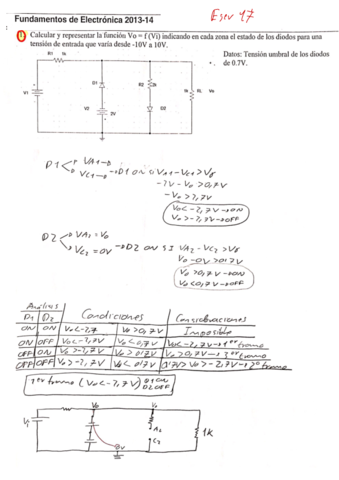 Fundamentos de Electrónica 2013-14
1 Calcular y representar la función Vo = f (Vi) indicando en cada zona el estado de los diodos para una
tensión de entrada que varía desde -10V a 10V.
Datos: Tensión umbral de los diodos
de 0.7V.
R1 1k
D1
R2 2k
V1
V2
2V
D2
1k RL Vo
D1
VA1
VC1
D1 ON
VA1 - VC1 > Vγ
-2V - Vo > 0,7V
-Vo > 2,7V
Vo < -2,7V → ON
Vo > -2,7V → OFF
D2
VA2 = Vo
VC2 = 0V → D2 ON SI VA2 - VC2 > Vγ
Vo - 0V > 0,7V
Vo > 0,7V → ON
Vo < 0,7V → OFF
Análisis
D1 D2 Condiciones Consideraciones
ON ON Vo < -2,7 Vo > 0,7V Imposible
ON OFF Vo < -2,7V Vo < 0,7V Vo < -2,7V → 1er tramo
OFF ON Vo > -2,7V Vo > 0,7V Vo > 0,7V → 3er tramo
OFF OFF Vo > -2,7V Vo < 0,7V 0,7V > Vo > -2,7V → 2º tramo
1er tramo (Vo < -2,7V) D1 ON
D2 OFF
Vo Vo
Vi
A2
C2
1K
0V